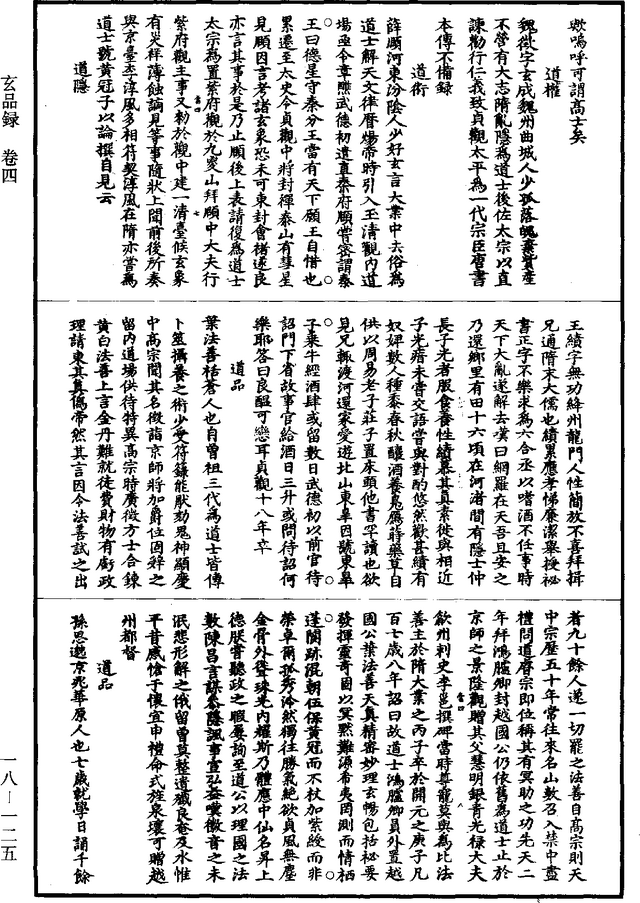 歟嗚呼可謂高士矣
道權
魏徵字玄成魏州曲城人少孤落魄棄貲產
不營有大志隋亂隱為道士後佐太宗以直
諫勸行仁義致貞觀太平為一代宗臣唐書
本傳不備錄
道術
薛頤河東汾陰人少好玄言大業中去俗為
道士解天文律曆煬帝時引入玉清觀內道
場亟令章醮武德初遣直秦府頤嘗密謂秦
王曰德星守秦分王當有天下願王自惜也
累遷至太史令貞觀中將封禪泰山有彗星
見頤因言考諸玄象恐未可東封會褚遂良
亦言其事於是乃止頤後上表請復為道士
太宗為置紫府觀於九嵕山拜頤中大夫行
紫府觀主事又勑於觀中建一清臺候玄象
有災祥薄蝕謫見等事隨狀上聞前後所奏
與京臺李淳風多相符契淳風在隋亦嘗為
道士號黃冠子以論撰自見云
道隱
王績字無功絳州龍門人性簡放不喜拜揖
兄通隋末大儒也績累應孝悌廉潔舉授祕
書正字不樂求為六合丞以嗜酒不任事時
天下大亂遂解去嘆曰網羅在天吾且安之
乃還鄉里有田十六頃在河渚間有隱士仲
長子光者服食養性績慕其真素徙與相近
子光瘖未嘗交語嘗與對酌悠然歡甚績有
奴婢數人種黍春秋釀酒養鳧鴈蒔藥草自
供以周易老子莊子置床頭他書罕讀也欲
見兄輒渡河還家愛遊北山東皋因號東皋
子乘牛經酒肆或留數日武德初以前官待
詔門下省故事官給酒日三升或問待詔何
樂耶答曰良醞可戀耳貞觀十八年卒
道品
葉法善括蒼人也自曾祖三代為道士皆傳
卜筮攝養之術少受符籙能厭劾鬼神顯慶
中高宗聞其名徵詣京師將加爵位固辭之
留內道場供待特異高宗時廣徵方士合鍊
黃白法善上言金丹難就徒費財物有虧政
理請柬其真偽帝然其言因令法善試之出
者九十餘人遂一切罷之法善自高宗則天
中宗歷五十年常往來名山數召入禁中盡
禮問道睿宗即位稱其有冥助之功先天二
年拜鴻臚卿封越國公仍依舊為道士止於
京師之景隆觀贈其父慧明銀青光祿大夫
歙州刺史李邕撰碑當時尊寵莫與為比法
善生於隋大業之丙子卒於開元之庚子凡
百七歲八年詔曰故道士鴻臚卿員外置越
國公葉法善天真精密妙理玄暢包括祕要
發揮靈奇固以冥默難源希夷罔測而情栖
蓬閬跡混朝伍保黃冠而不杖加紫綬而非
榮卓爾孤秀泠然獨往勝氣絕欲貞風無塵
金骨外聳珠光內耀斯乃體應中仙名昇上
德朕嘗聽政之暇屢詢至道公以理國之法
數陳昌言謀參隱諷事宣弘益嘆徽音之未
泯悲形解之俄留曾莫慭遺殲良奄及永惟
平昔感愴于懷宜申禮命式旌泉壤可贈越
州都督
道品
孫思邈京兆華原人也七歲就學日誦千餘
玄品録 卷四
一八—一二五